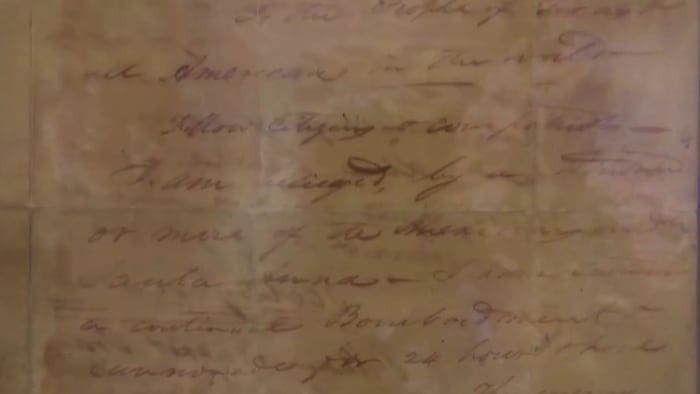 To the People of Texas &
all Americans in the world —
Fellow Citizens & compatriots —
I am besieged, by a thousand
or more of the Mexicans under
Santa Anna — I have sustained
a continual Bombardment &
cannonade for 24 hours & have
The enemy